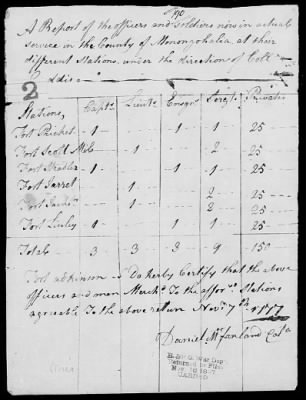 A Report of the officers and Soldiers now in actual
service in the County of Monongohalia, at their
different Stations, under the direction of Coll
2
Stations, Capts. Lieuts. Ensgns. Sergts. Privates
Fort Pricket 1 1 1 25
Fort Scott 1 2 25
Fort 1 1 1 25
Fort Garret 1 2 25
Fort 1 2 25
Fort 1 1 1 25
Total 3 3 3 9 150
Fort Do herby Certify that the above
officers and men March. To the affor. Stations
agreeable To the above return Novr. 7th 1777
Daniel McFarland Col
R. & P. O. War Dep't
Returned to Files
CARDED